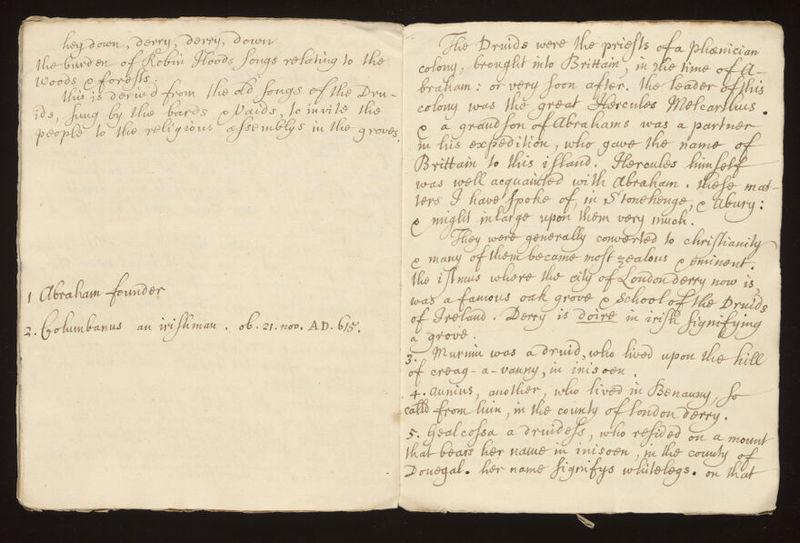 hey down, derry, derry, down
the burden of Robin Hoods songs relating to the
woods & forests.
this is derived from the old songs of the Dru-
ids, sung by the bards & Vaids, to invite the
people to the religious assemblys in the groves.
1 Abraham founder
2. Columbanus an irishman. ob. 21. nov. AD. 615.
The Druids were the priests of a phœnician
colony, brought into Brittain, in the time of A-
braham: or very soon after. the leader of this
colony was the great Hercules Melcarthus.
& a grandson of Abrahams was a partner
in his expedition, who gave the name of
Brittain to this island. Hercules himself
was well acquainted with Abraham. these mat-
ters I have spoke of, in Stonehenge, & Abury:
& might inlarge upon them very much.
They were generally converted to christianity
& many of them became most zealous & eminent.
the istmus where the city of Londonderry now is,
was a famous oak grove & school of the Druids
of Ireland. Derry is doire in irish signifying
a grove.
3. Murnin was a druid, who lived upon the hill
of creag-a-vanny, in inisoen.
4. Aunius, another, who lived in Benauny, so
calld from him, in the county of london derry.
5. Gealcossa a druidess, who resided on a mount
that bears her name in inisoen, in the county of
Donegal. her name signifys whitelegs. on that